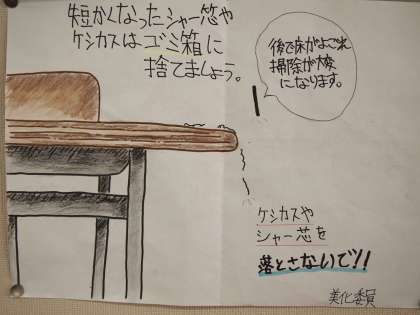 短かくなったシャー芯や
ケシカスはゴミ箱に
捨てましょう。
後で床がよごれ
掃除が大変
になります。
ケシカスや
シャー芯を
落とさないで!!
美化委員